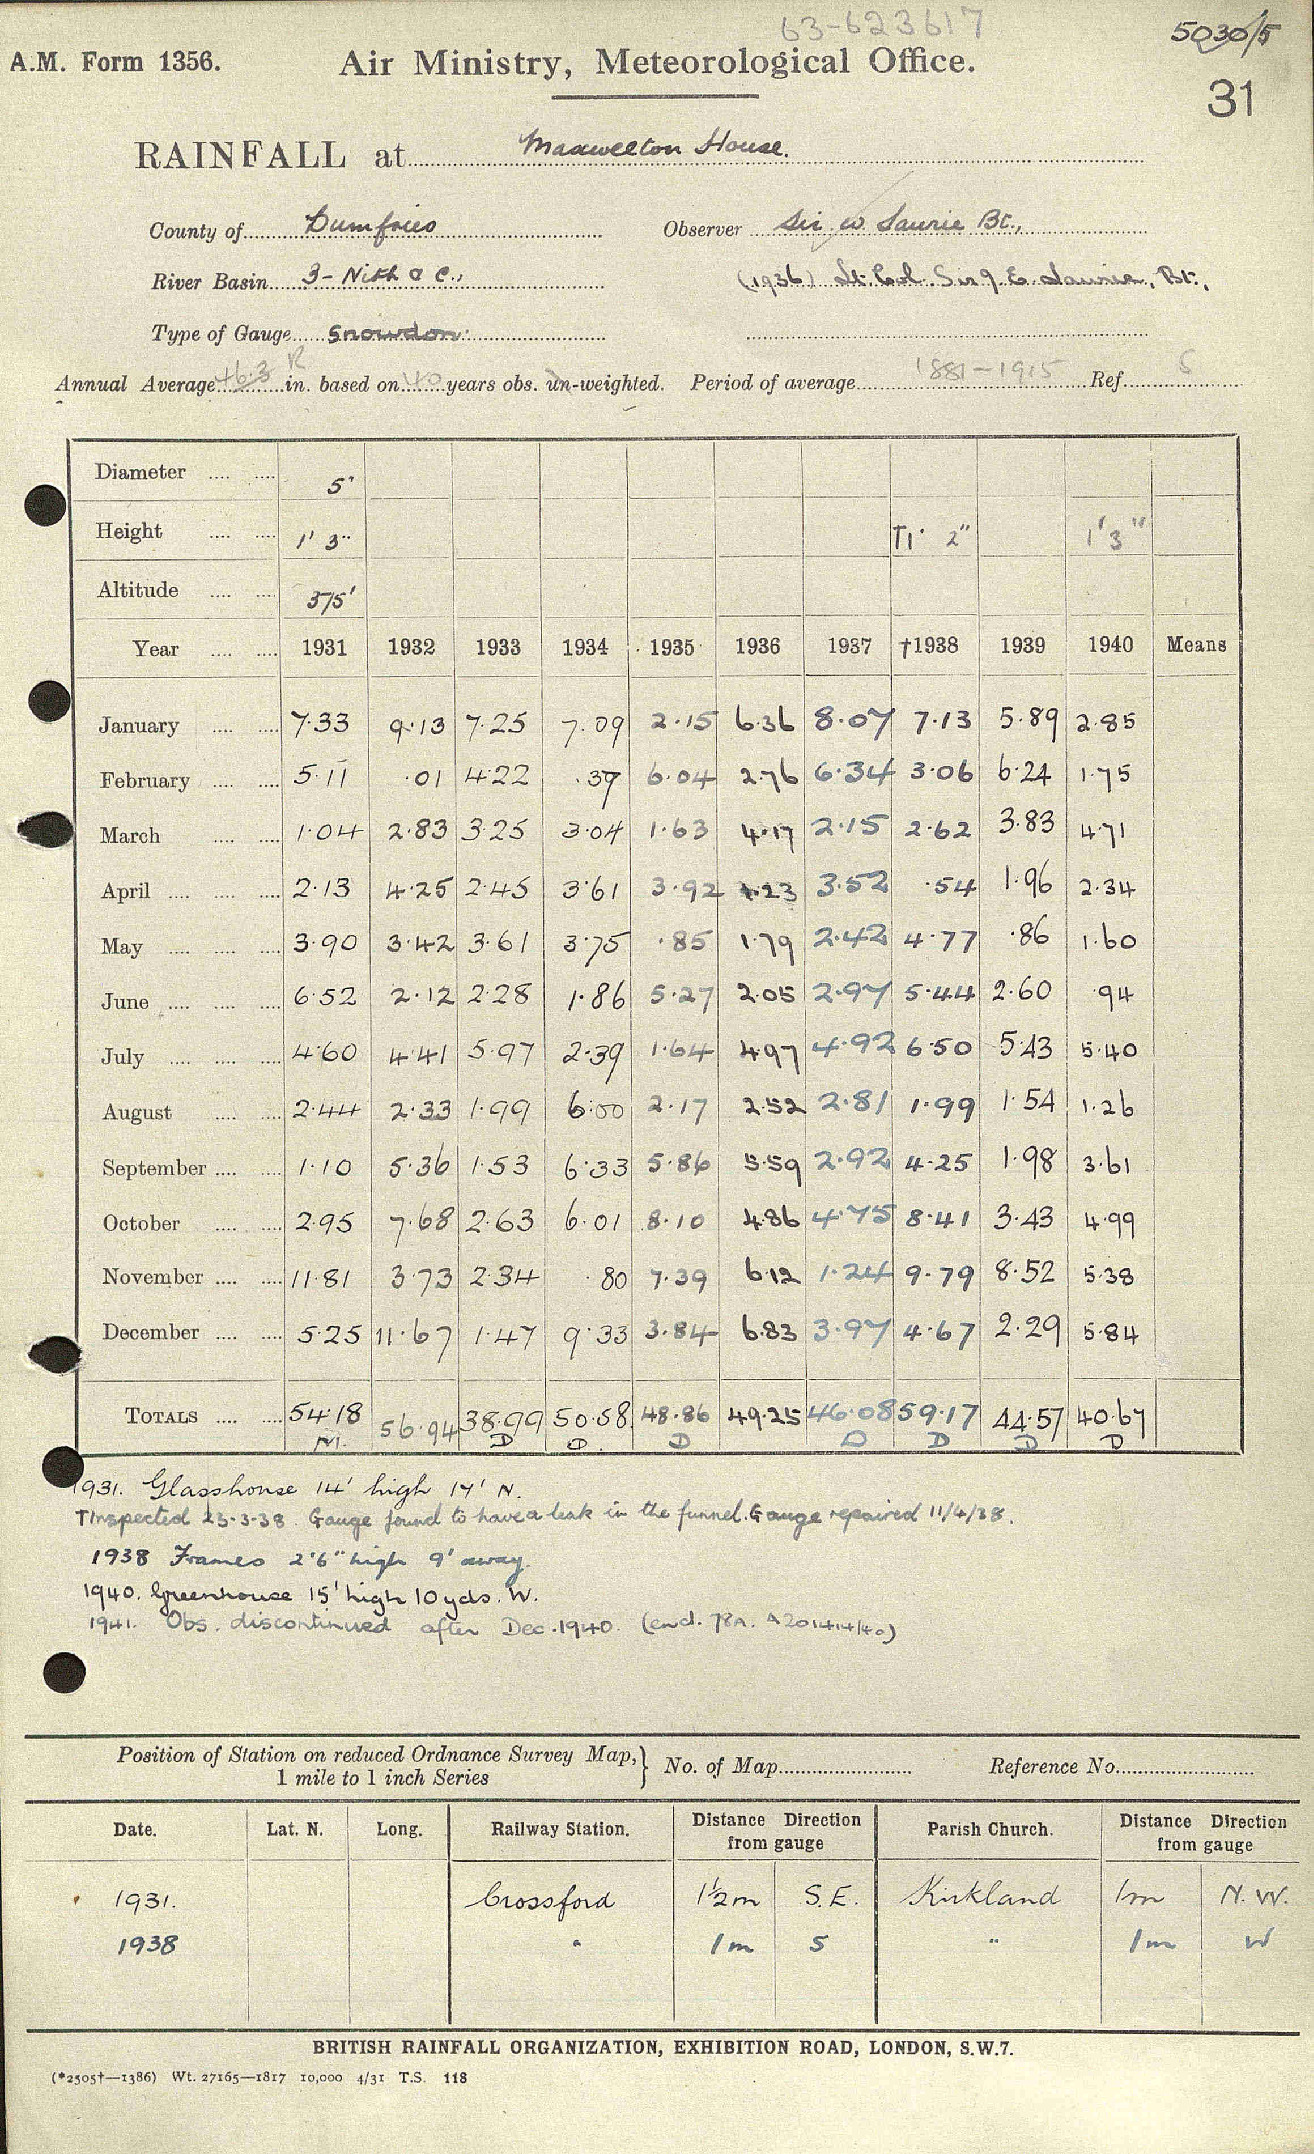 63-623617
5030/5
A.M. Form 1356. Air Ministry, Meteorological Office.
31
RAINFALL at Maxwelton House.
County of Dumfries Observer Sir W Laurie Bt.,
River Basin 3 - Nith & C., (1936) Lt. Col. Sir J. E. Laurie, Bt.,
Type of Gauge Snowdon
Annual Average 46.3 R in. based on 40 years obs. un-weighted. Period of average 1881-1915 Ref. S
Diameter 5"
Height 1' 3" †1' 2" 1'3"
Altitude 375'
Year 1931 1932 1933 1934 1935 1936 1937 †1938 1939 1940 Means
January 7.33 9.13 7.25 7.09 2.15 6.36 8.07 7.13 5.89 2.85
February 5.11 .01 4.22 .37 6.04 2.76 6.34 3.06 6.24 1.75
March 1.04 2.83 3.25 3.04 1.63 4.17 2.15 2.62 3.83 4.71
April 2.13 4.25 2.45 3.61 3.92 1.23 3.52 .54 1.96 2.34
May 3.90 3.42 3.61 3.75 .85 1.79 2.42 4.77 .86 1.60
June 6.52 2.12 2.28 1.86 5.27 2.05 2.97 5.44 2.60 .94
July 4.60 4.41 5.97 2.39 1.64 4.97 4.92 6.50 5.43 5.40
August 2.44 2.33 1.99 6.00 2.17 2.52 2.81 1.99 1.54 1.26
September 1.10 5.36 1.53 6.33 5.86 5.59 2.92 4.25 1.98 3.61
October 2.95 7.68 2.63 6.01 8.10 4.86 4.75 8.41 3.43 4.99
November 11.81 3.73 2.34 .80 7.39 6.12 1.24 9.79 8.52 5.38
December 5.25 11.67 1.47 9.33 3.84 6.83 3.97 4.67 2.29 5.84
TOTALS 54.18 56.94 38.99 50.58 48.86 49.25 46.08 59.17 44.57 40.67
M. D D D D D D D
1931. Glasshouse 14' high 17' N.
†Inspected 23-3-38. Gauge found to have a leak in the funnel. Gauge repaired 11/4/38.
1938 Frames 2'6" high 9' away.
1940. Greenhouse 15' high 10 yds. W.
1941. Obs. discontinued after Dec. 1940. (encl. 78A.
Position of Station on reduced Ordnance Survey Map, } No. of Map Reference No.
1 mile to 1 inch Series
Date. Lat. N. Long. Railway Station. Distance Direction from gauge Parish Church. Distance Direction from gauge
1931. Crossford 1½m S.E. Kirkland 1m N.W.
1938 " 1m S " 1m W
BRITISH RAINFALL ORGANIZATION, EXHIBITION ROAD, LONDON, S.W.7.
(*2505†—1386) Wt. 27165—1817 10,000 4/31 T.S. 118